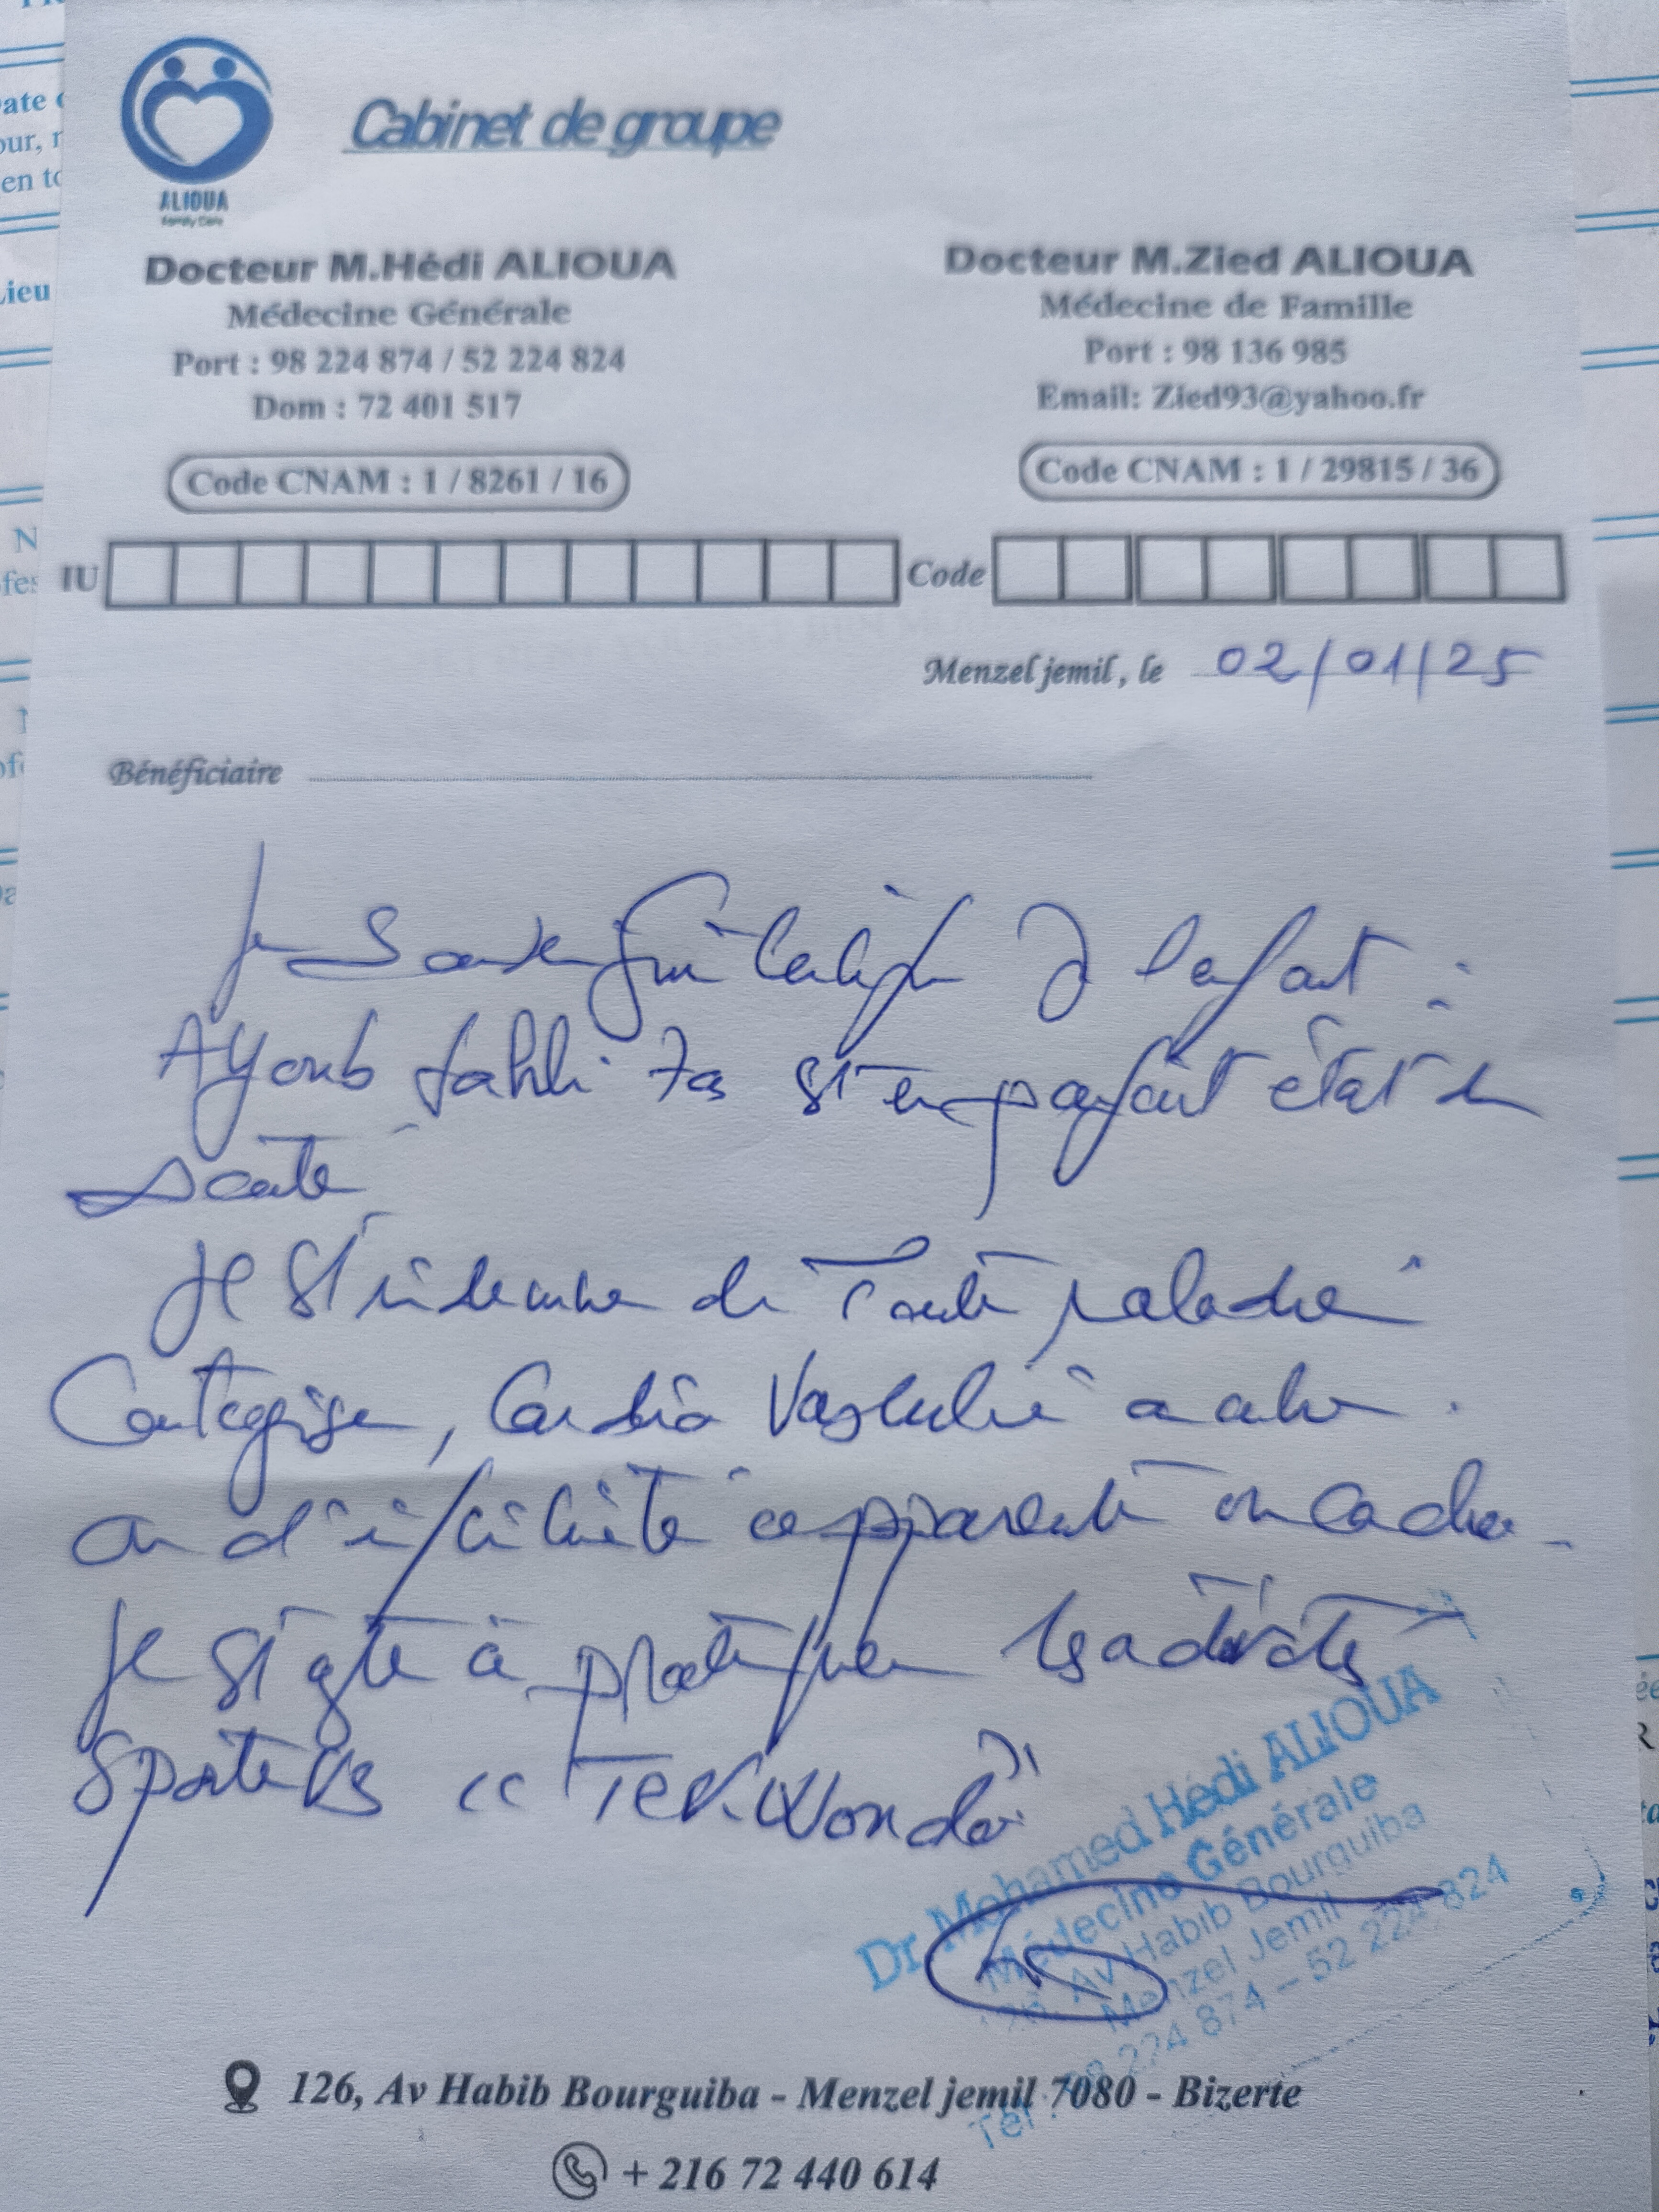 Cabinet de groupe
ALIOUA
Family Care
Docteur M.Hédi ALIOUA
Médecine Générale
Port : 98 224 874 / 52 224 824
Dom : 72 401 517
Code CNAM : 1 / 8261 / 16
Docteur M.Zied ALIOUA
Médecine de Famille
Port : 98 136 985
Email: Zied93@yahoo.fr
Code CNAM : 1 / 29815 / 36
IU
Code
Menzel jemil , le 02/01/25
Bénéficiaire
Je l'enfant :
Ayoub 7as st en parfait état de
santé
Il st indemne de toute maladie
Contagieuse, Cardio Vasculaire
ou d'infirmité apparente ou cachée.
Il st apte à pratiquer les activités
Sportives
Dr Mohamed Hédi ALIOUA
Médecine Générale
126, Av Habib Bourguiba
Menzel Jemil
Tél : 98 224 874 – 52 224 824
126, Av Habib Bourguiba - Menzel jemil 7080 - Bizerte
+ 216 72 440 614